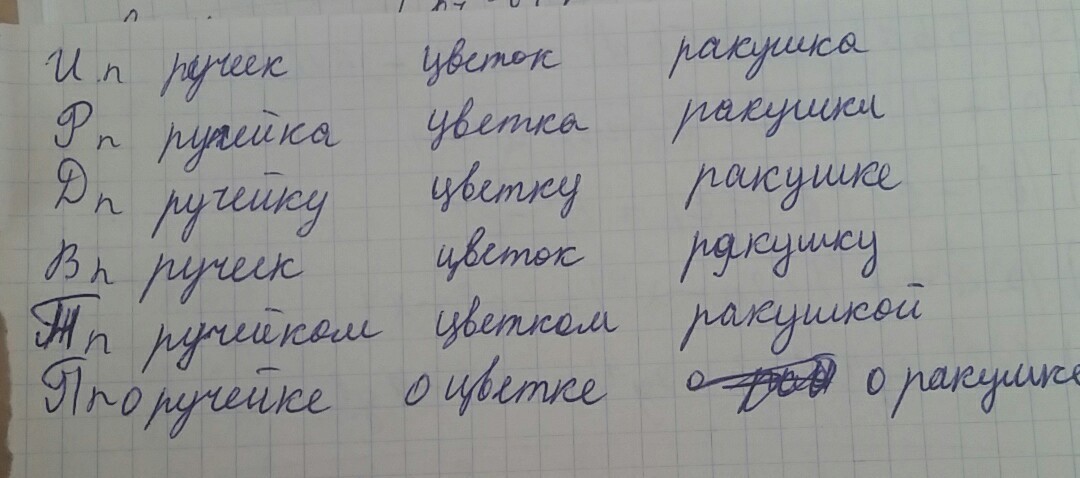 И п ручеек цветок ракушка
Р п ручейка цветка ракушки
Д п ручейку цветку ракушке
В п ручеек цветок ракушку
Т п ручейком цветком ракушкой
П п о ручейке о цветке о о ракушке